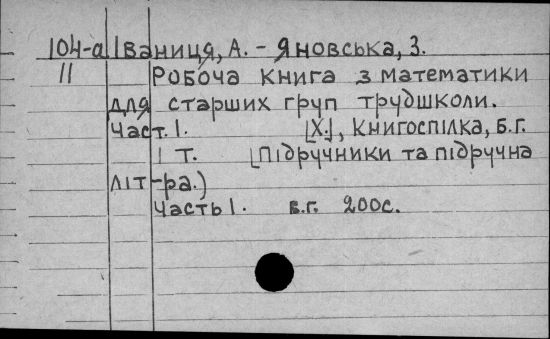 104-а Іваниця, А. - Яновська, З.
II Робоча книга з математики
для старших груп трудшколи.
Част. I. [Х.], Книгоспілка, б.г.
I т. [Підручники та підручна
літ-ра.)
Часть I. в.г. 200с.